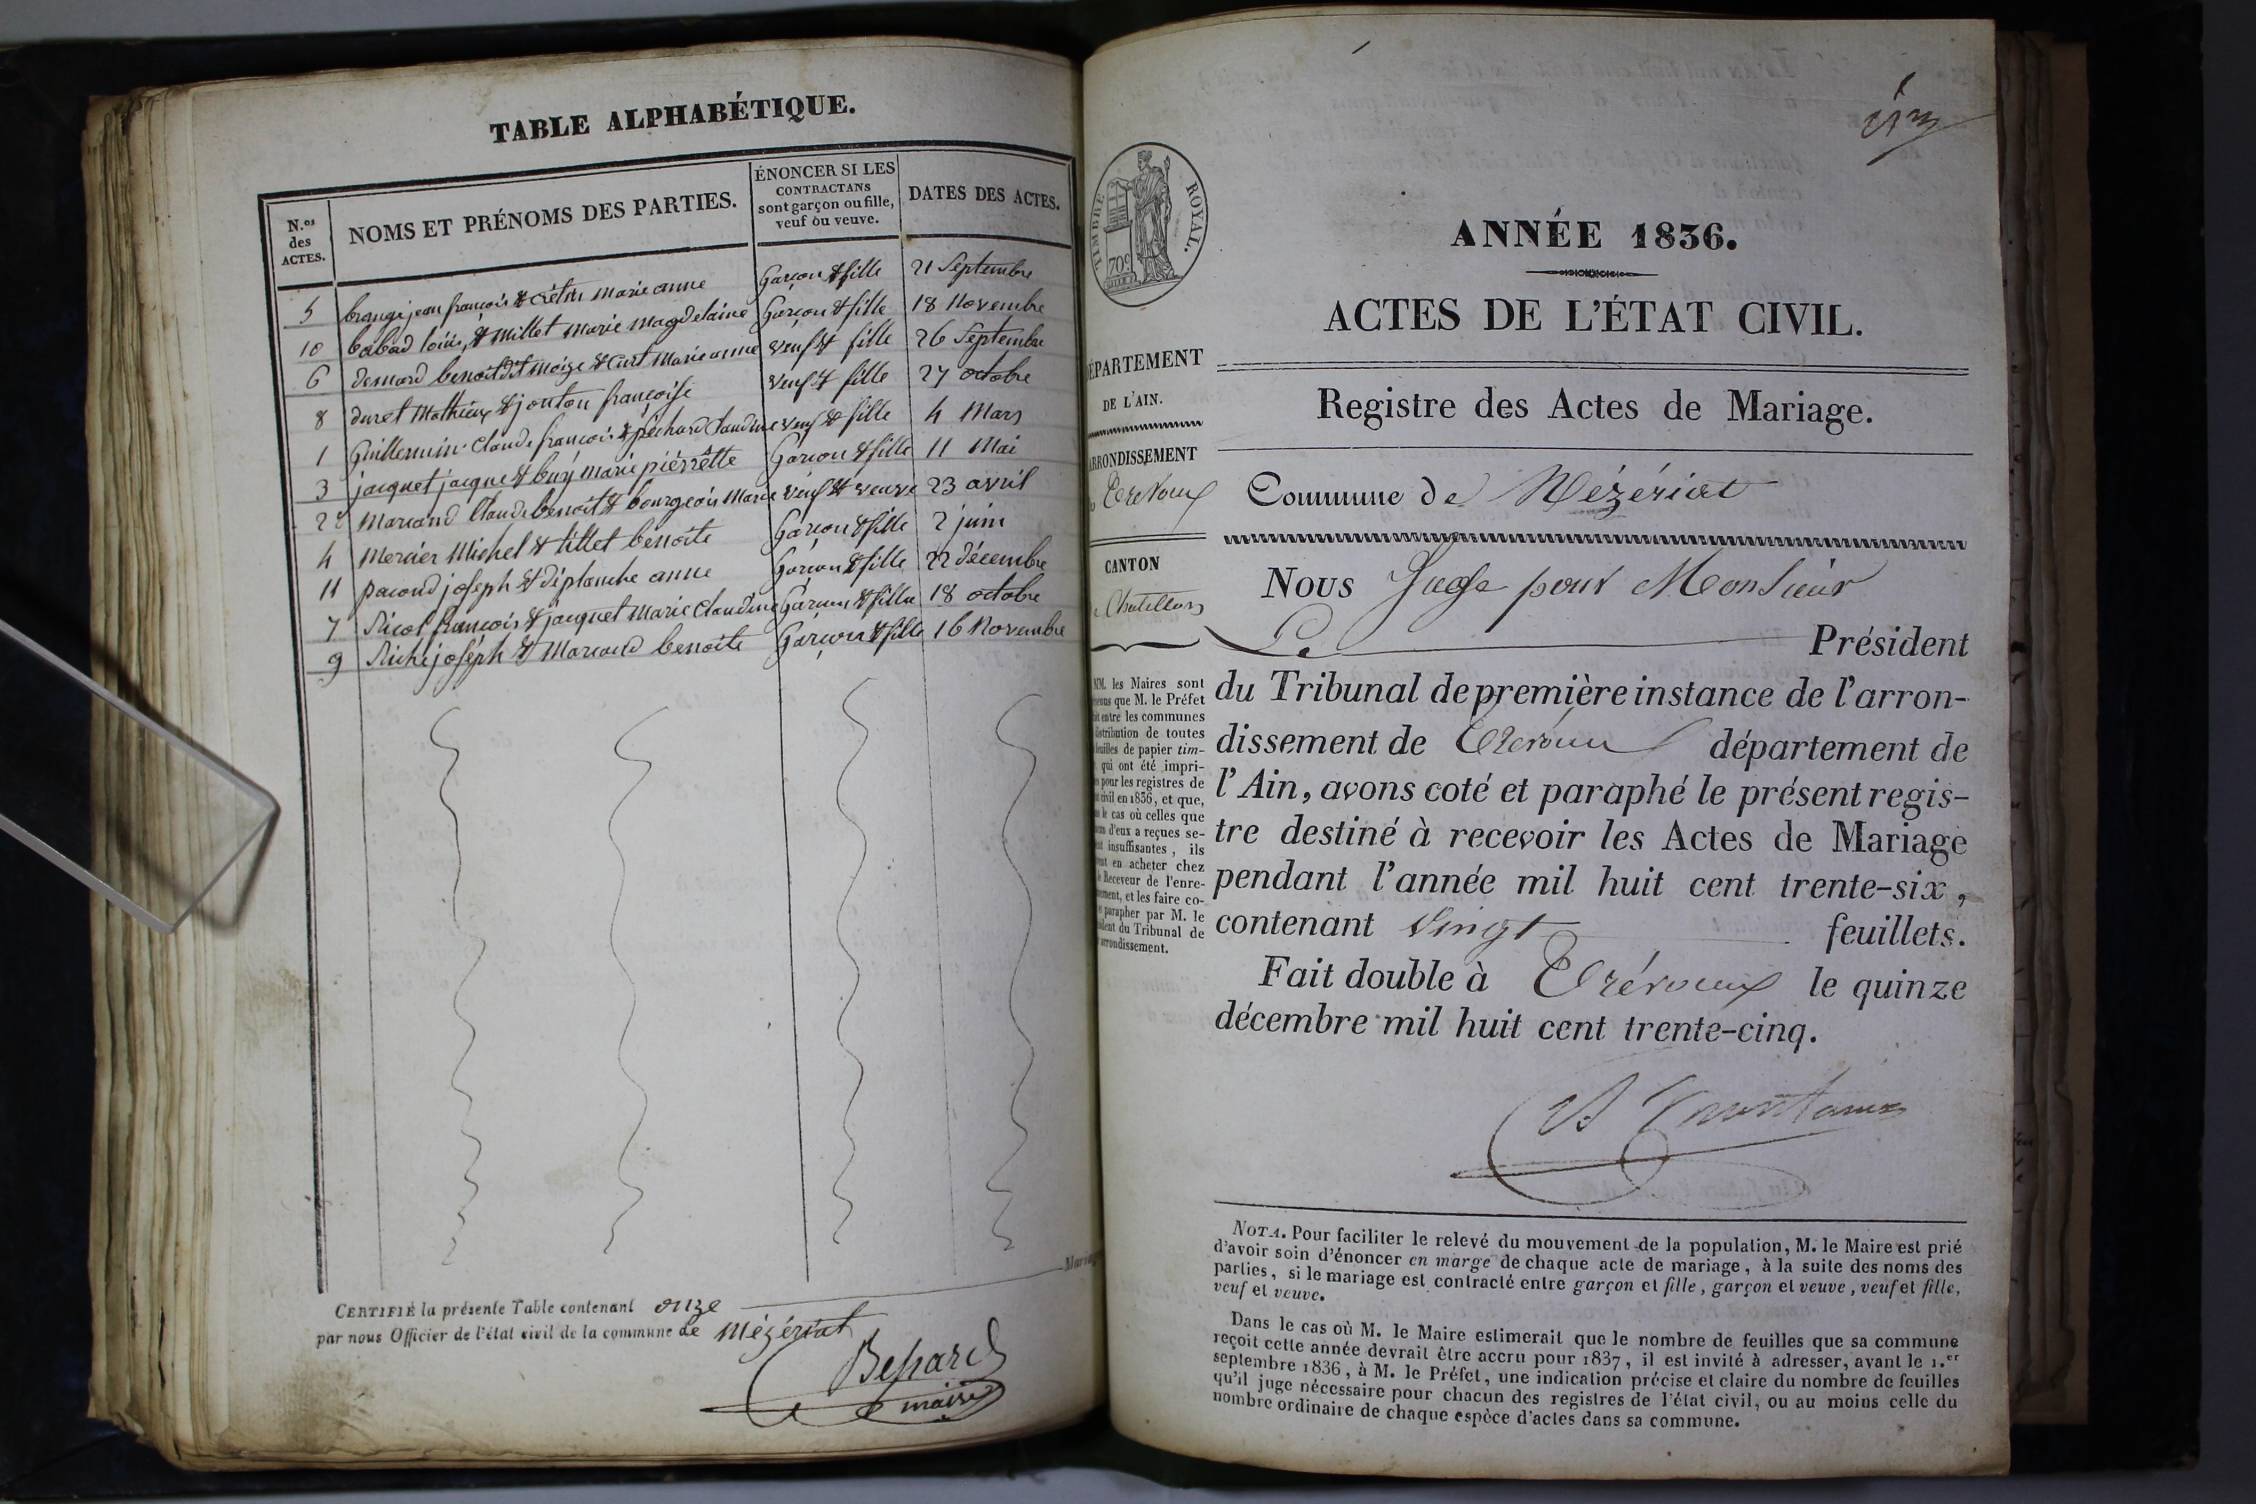 TABLE ALPHABÉTIQUE.
N.os des ACTES.
NOMS ET PRÉNOMS DES PARTIES.
ÉNONCER SI LES CONTRACTANS sont garçon ou fille, veuf ou veuve.
DATES DES ACTES.
5 brange jean françois & crétin marie anne Garçon & fille 21 Septembre
10 babad loüis, & Millet Marie Magdelaine Garçon & fille 18 Novembre
6 demard benoit dit moize & Curt Marie anne veuf & fille 26 Septembre
8 duret Mathieux & jonton françoise veuf & fille 27 octobre
1 Guillermin Claude françois & péchard Claudine veuf & fille 4 Mars
3 jacquet jacque & buy marie pierrêtte Garçon & fille 11 Mai
2 Marcand Claude benoit & bourgeois Marie veuf & veuve 23 avril
4 Mercier Michel & tillet benoite Garçon & fille 2 juin
11 pacoud joseph & déplanche anne Garçon & fille 22 décembre
7 françois & jacquet Marie Claudine Garçon & fille 18 octobre
9 joséph & Marcand benoite Garçon & fille 16 Novembre
CERTIFIÉ la présente Table contenant onze
par nous Officier de l'état civil de la commune de Mézériat
maire
TIMBRE ROYAL.
70c
ANNÉE 1836.
ACTES DE L'ÉTAT CIVIL.
DÉPARTEMENT
DE L'AIN.
Registre des Actes de Mariage.
ARRONDISSEMENT
Trévoux
Commune de Mézériat
CANTON
Chatillon
Nous Juge pour Monsieur
Le Président
du Tribunal de première instance de l'arron-
dissement de Trévoux département de
l'Ain, avons coté et paraphé le présent regis-
tre destiné à recevoir les Actes de Mariage
pendant l'année mil huit cent trente-six,
contenant Vingt feuillets.
Fait double à Trévoux le quinze
décembre mil huit cent trente-cinq.
MM. les Maires sont
que M. le Préfet
entre les communes
distribution de toutes
feuilles de papier tim-
qui ont été impri-
pour les registres de
civil en 1836, et que,
le cas où celles que
d'eux a reçues se-
insuffisantes, ils
en acheter chez
Receveur de l'enre-
et les faire co-
parapher par M. le
du Tribunal de
arrondissement.
NOTA. Pour faciliter le relevé du mouvement de la population, M. le Maire est prié
d'avoir soin d'énoncer en marge de chaque acte de mariage, à la suite des noms des
parties, si le mariage est contracté entre garçon et fille, garçon et veuve, veuf et fille,
veuf et veuve.
Dans le cas où M. le Maire estimerait que le nombre de feuilles que sa commune
reçoit cette année devrait être accru pour 1837, il est invité à adresser, avant le 1.er
septembre 1836, à M. le Préfet, une indication précise et claire du nombre de feuilles
qu'il juge nécessaire pour chacun des registres de l'état civil, ou au moins celle du
nombre ordinaire de chaque espèce d'actes dans sa commune.